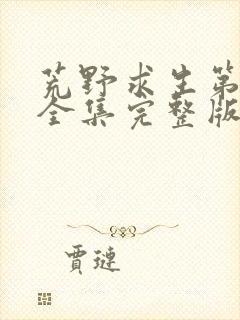 荒野求生第
全集完整版
賈璉